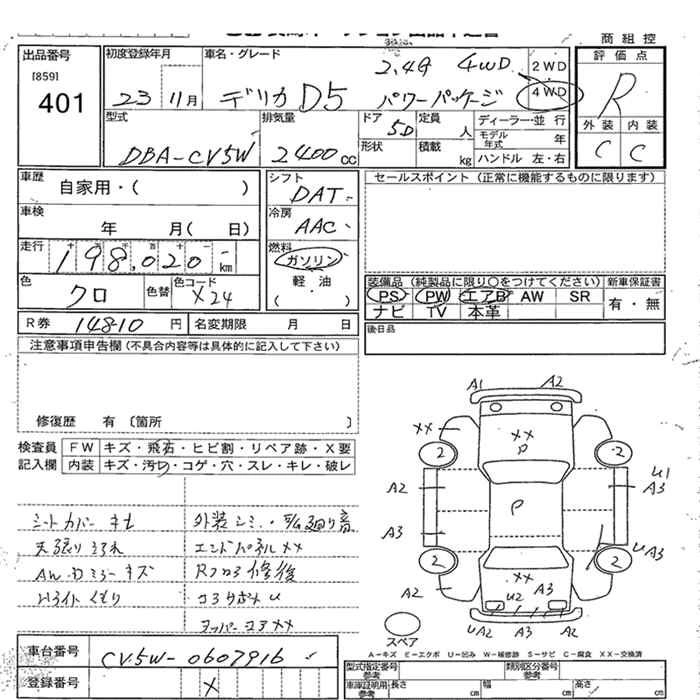 商組控
出品番号
[859]
401
初度登録年月
23 11月
車名・グレード
2,4G 4WD
デリカ D5 パワーパッケージ
2WD
4WD
評価点
R
外装 内装
C C
型式
DBA-CV5W
排気量
2400cc
ドア 5D
定員 人
形状
積載 kg
ディーラー・並行
モデル年式 年
ハンドル 左・右
車歴
自家用・( )
車検
年 月( 日)
走行
198,020 km
色
クロ
色替
色コード
X24
シフト
DAT
冷房
AAC
燃料
ガソリン
軽・油
( )
セールスポイント (正常に機能するものに限ります)
装備品 (純製品に限り○をつけてください)
新車保証書
PS PW エアB AW SR
ナビ TV 本革
有・無
R券 14810 円
名変期限 月 日
後日品
注意事項申告欄 (不具合内容等は具体的に記入して下さい)
修復歴 有 〔箇所 〕
検査員記入欄
FW キズ・飛石・ヒビ割・リペア跡・X要
内装 キズ・汚れ・コゲ・穴・スレ・キレ・破レ
シートカバー
天張り
AW・Dミラー キズ
Hライト くもり
外装
エンドパネル XX
修後
コアサポート U
XX
A1 A2
XX
XX
P
2 2
A2
P
U1
A3
A3
U A3
2 2
XX
A2
U2 A3
U A2 A3 A3
スペア
A-キズ E-エクボ U-凹み W-補修跡 S-サビ C-腐食 XX-交換済
車台番号
CV5W-0607916
登録番号
X
型式指定番号
類別区分番号
車庫証明用参考
長さ cm
幅 cm
高さ cm
参考